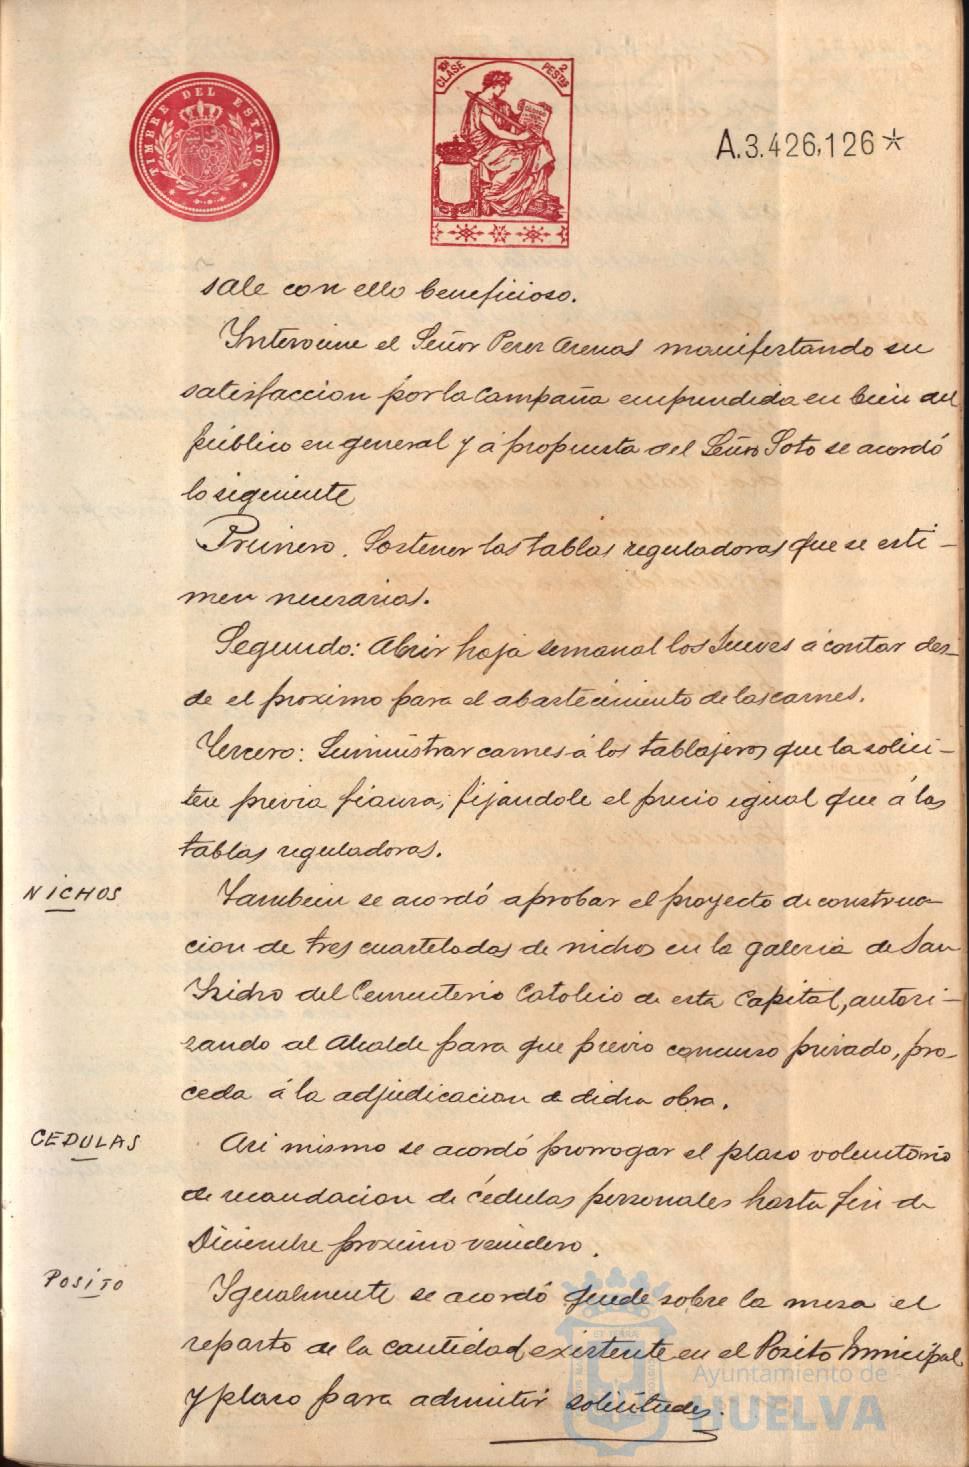 TIMBRE DEL ESTADO
10ª CLASE
2 PESTAS
A.3.426,126*
sale con ello beneficioso.
Interviene el Señor Perez Arenas manifestando su
satisfaccion por la campaña emprendida en bien del
público en general y á propuesta del Señor Soto se acordó
lo siguiente
Primero. Sostener las tablas reguladoras que se esti-
men necesarias.
Segundo: Abrir hoja semanal los Jueves á contar des-
de el proximo para el abastecimiento de las carnes.
Tercero: Suministrar carnes á los tablajeros que la solici-
ten previa fianza, fijandole el precio igual que á las
tablas reguladoras.
NICHOS
Tambien se acordó aprobar el proyecto de construc-
cion de tres cuarteladas de nichos en la galeria de San
Isidro del Cementerio Catolico de esta Capital, autori-
zando al Alcalde para que previo concurso privado, pro-
ceda á la adjudicacion de dicha obra.
CEDULAS
Asi mismo se acordó prorrogar el plazo voluntario
de recaudacion de cédulas personales hasta fin de
Diciembre proximo venidero.
POSITO
Igualmente se acordó quede sobre la mesa el
reparto de la cantidad existente en el Posito Municipal
y plazo para admitir solicitudes.
Ayuntamiento de
HUELVA